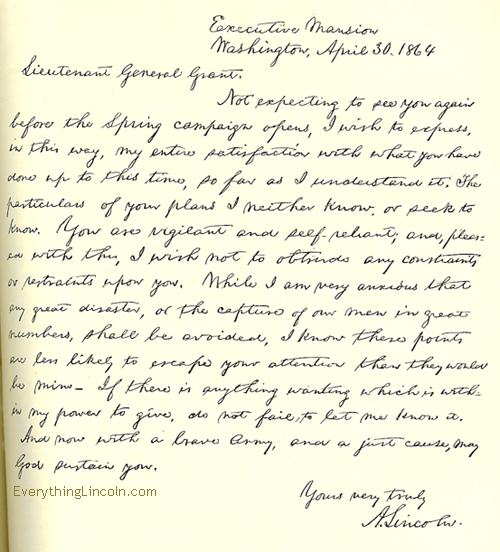 Executive Mansion
Washington, April 30. 1864
Lieutenant General Grant.
Not expecting to see you again
before the Spring campaign opens, I wish to express,
in this way, my entire satisfaction with what you have
done up to this time, so far as I understand it. The
particulars of your plans I neither know, or seek to
know. You are vigilant and self-reliant; and, pleas-
ed with this, I wish not to obtrude any constraints
or restraints upon you. While I am very anxious that
any great disaster, or the capture of our men in great
numbers, shall be avoided, I know these points
are less likely to escape your attention than they would
be mine- If there is anything wanting which is with-
in my power to give, do not fail, to let me know it.
And now with a brave Army, and a just cause, may
God sustain you.
EverythingLincoln.com
Yours very truly
A. Lincoln.